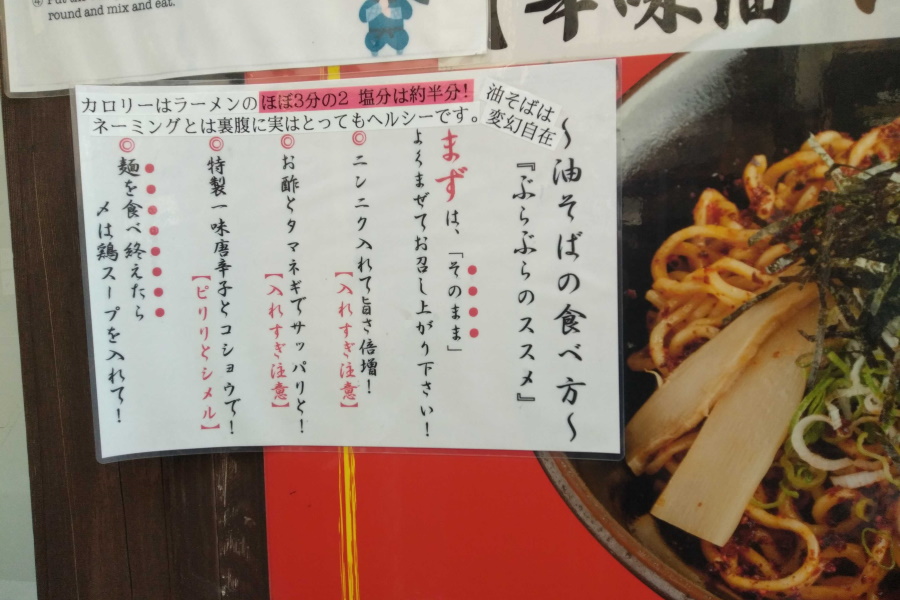 round and mix and eat.
カロリーはラーメンのほぼ3分の2 塩分は約半分!
ネーミングとは裏腹に実はとってもヘルシーです。
油そばは
変幻自在
〜油そばの食べ方〜
『ぶらぶらのススメ』
まずは、「そのまま」
よくまぜてお召し上がり下さい!
◎ニンニク入れて旨さ倍増!
【入れすぎ注意】
◎お酢とタマネギでサッパリと!
【入れすぎ注意】
◎特製一味唐辛子とコショウで!
【ピリリとシメル】
◎麺を食べ終えたら
〆は鶏スープを入れて!